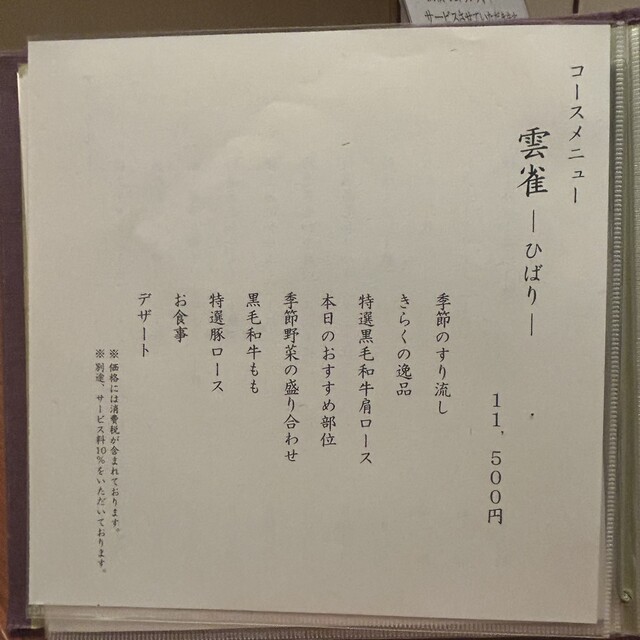 サービスさせていただきます
コースメニュー
雲雀 ―ひばり―
11,500円
季節のすり流し
きらくの逸品
特選黒毛和牛肩ロース
本日のおすすめ部位
季節野菜の盛り合わせ
黒毛和牛もも
特選豚ロース
お食事
デザート
※ 価格には消費税が含まれております。
※ 別途、サービス料10％をいただいております。